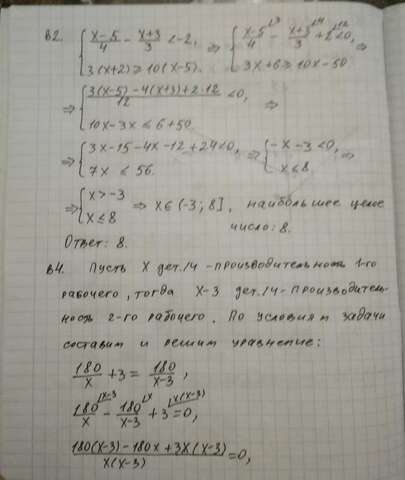 В2. { (x-5)/4 - (x+3)/3 < -2, ⇒ { (x-5)/4 ⌊3 - (x+3)/3 ⌊4 + 2 ⌊12 < 0, ⇒
3(x+2) ≥ 10(x-5). 3x+6 ≥ 10x-50
⇒ { (3(x-5) - 4(x+3) + 2·12)/12 < 0, ⇒
10x-3x ≤ 6+50.
⇒ { 3x-15-4x-12+24<0, ⇒ { -x-3<0, ⇒
7x ≤ 56. x ≤ 8
⇒ { x>-3
x ≤ 8 ⇒ x∈(-3; 8], наибольшее целое
число: 8.
Ответ: 8.
В4. Пусть x дет./ч - производительность 1-го
рабочего, тогда x-3 дет./ч - производитель-
ность 2-го рабочего. По условиям задачи
составим и решим уравнение:
180/x + 3 = 180/(x-3),
180/x ⌊x-3 - 180/(x-3) ⌊x + 3 ⌊x(x-3) = 0,
(180(x-3) - 180x + 3x(x-3))/(x(x-3)) = 0,